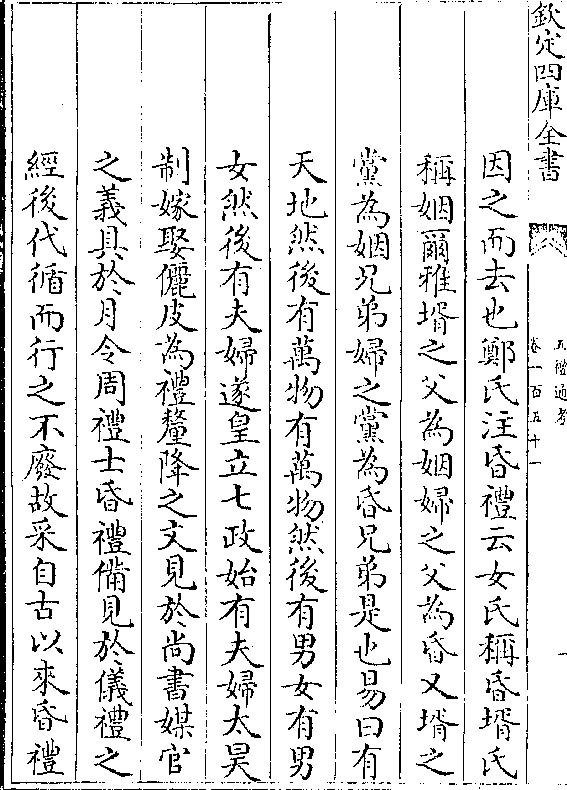 欽定四庫全書
五禮通考
卷一百五十一
因之而去也鄭氏注昏禮云女氏稱昏壻氏
稱姻爾雅壻之父為姻婦之父為昏又壻之
黨為姻兄弟婦之黨為昏兄弟是也易曰有
天地然後有萬物有萬物然後有男女有男
女然後有夫婦遂皇立七政始有夫婦太昊
制嫁娶儷皮為禮釐降之文見於尚書媒官
之義具於月令周禮士昏禮備見於儀禮之
經後代循而行之不廢故采自古以來昏禮